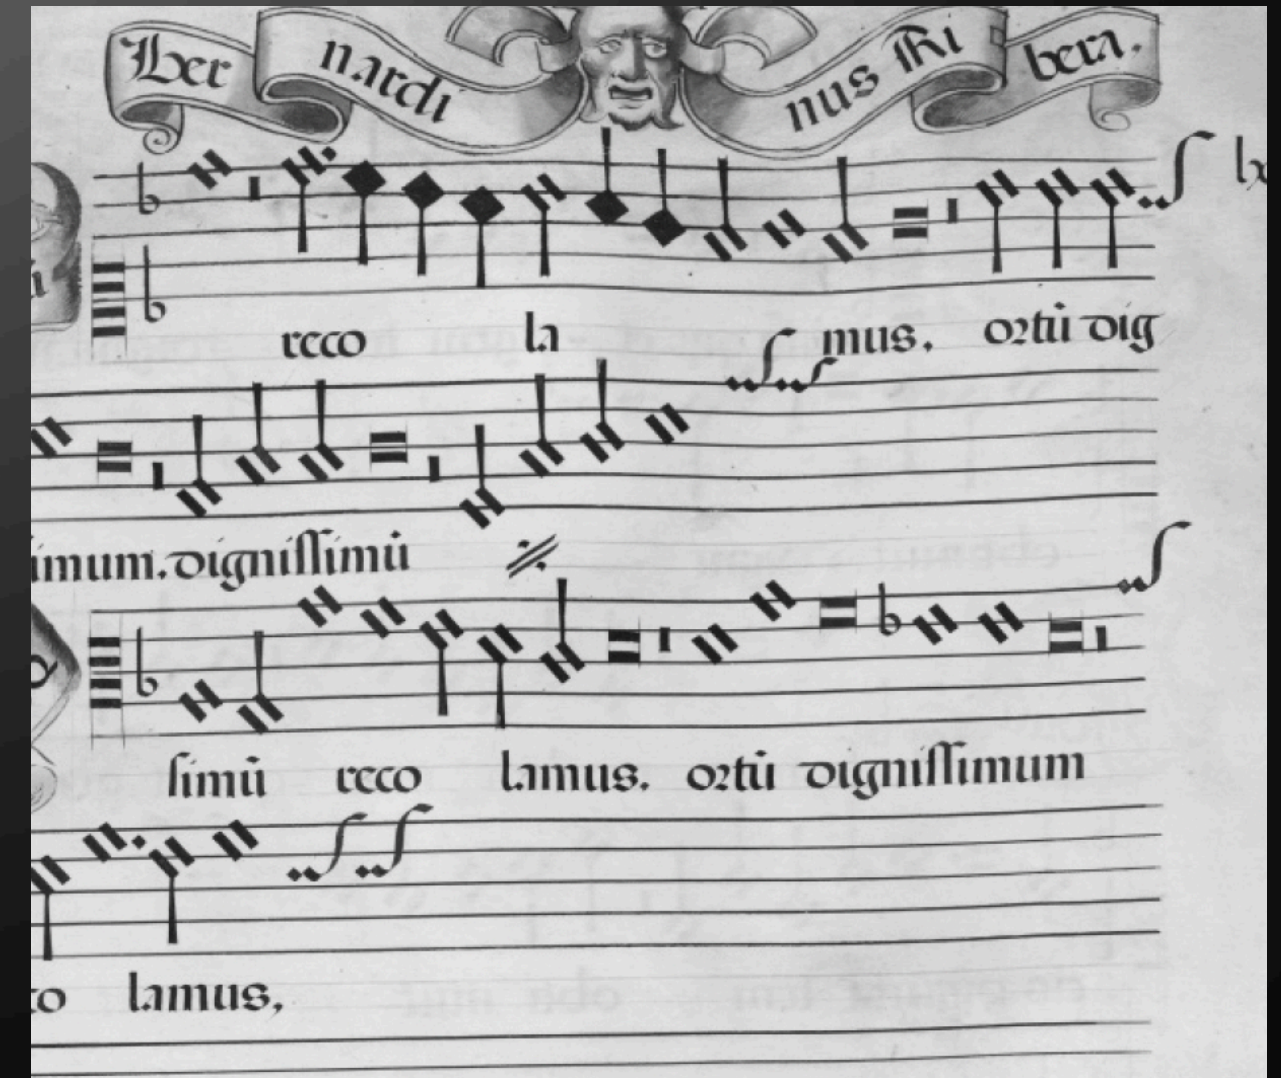 Ber nardi nus Ri bera.
recco la mus. ortū dig
imum. dignissimū
simū recco lamus. ortū dignissimum
co lamus,